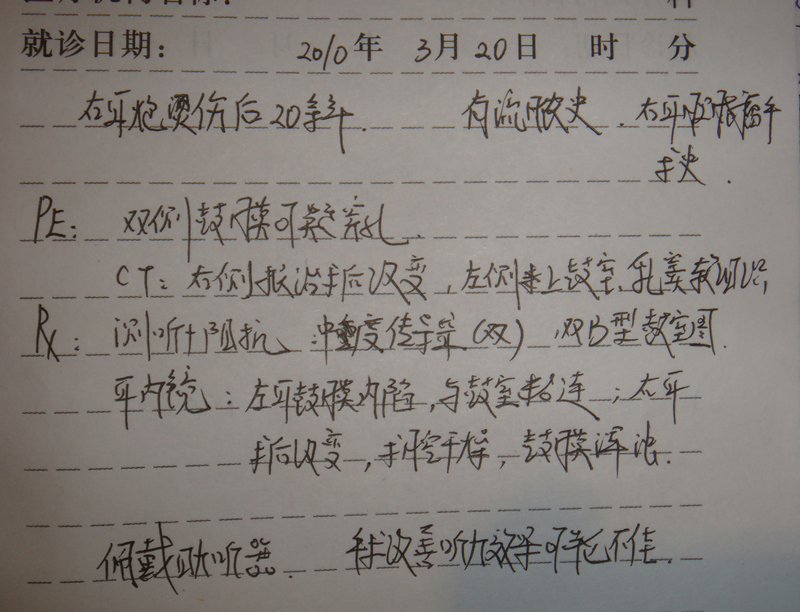 就诊日期: 2010年 3月20日 时 分
右耳烧烫伤后20余年. 有流脓史. 右耳
术史.
PE: 双侧鼓膜可疑穿孔.
CT: 右侧乳突术后改变, 左侧未上鼓室、乳突软组织,
Rx: 测听+阻抗 中重度传导聋(双), 双B型鼓室图.
耳内镜: 左耳鼓膜内陷, 与鼓室粘连; 右耳
术后改变, 术腔干燥, 鼓膜浑浊.
佩戴助听器. 手术改善听力效果可能不佳.